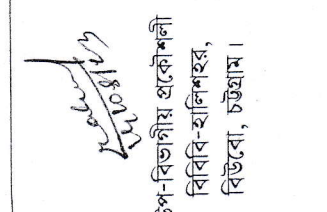 উপ-বিভাগীয় প্রকৌশলী
বিবিবি-হালিশহর,
বিউবো, চট্টগ্রাম।